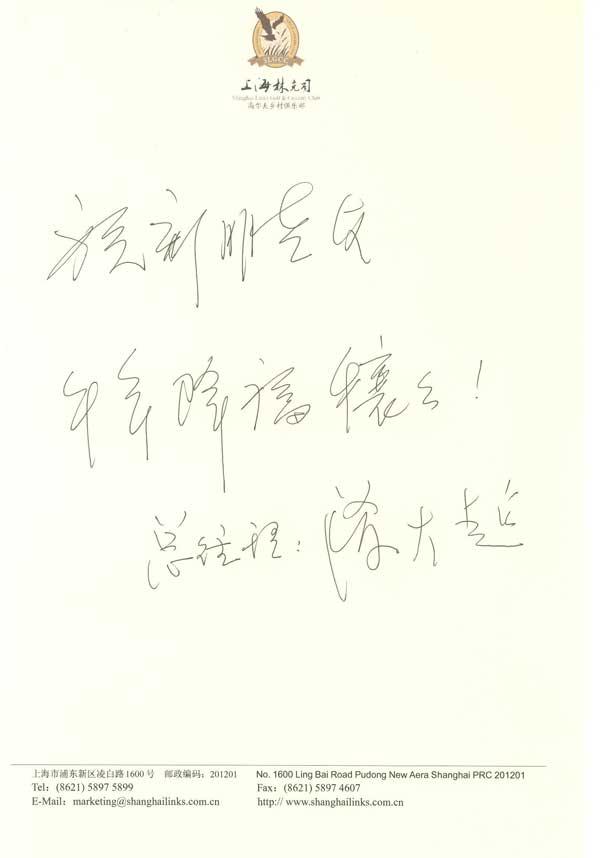 SLGCC
上海林克司
Shanghai Links Golf & Country Club
高尔夫乡村俱乐部
祝新朋老友
年年降福穰々！
总经理：
上海市浦东新区凌白路1600号 邮政编码：201201
No. 1600 Ling Bai Road Pudong New Aera Shanghai PRC 201201
Tel：(8621) 5897 5899
Fax：(8621) 5897 4607
E-Mail：marketing@shanghailinks.com.cn
http:// www.shanghailinks.com.cn